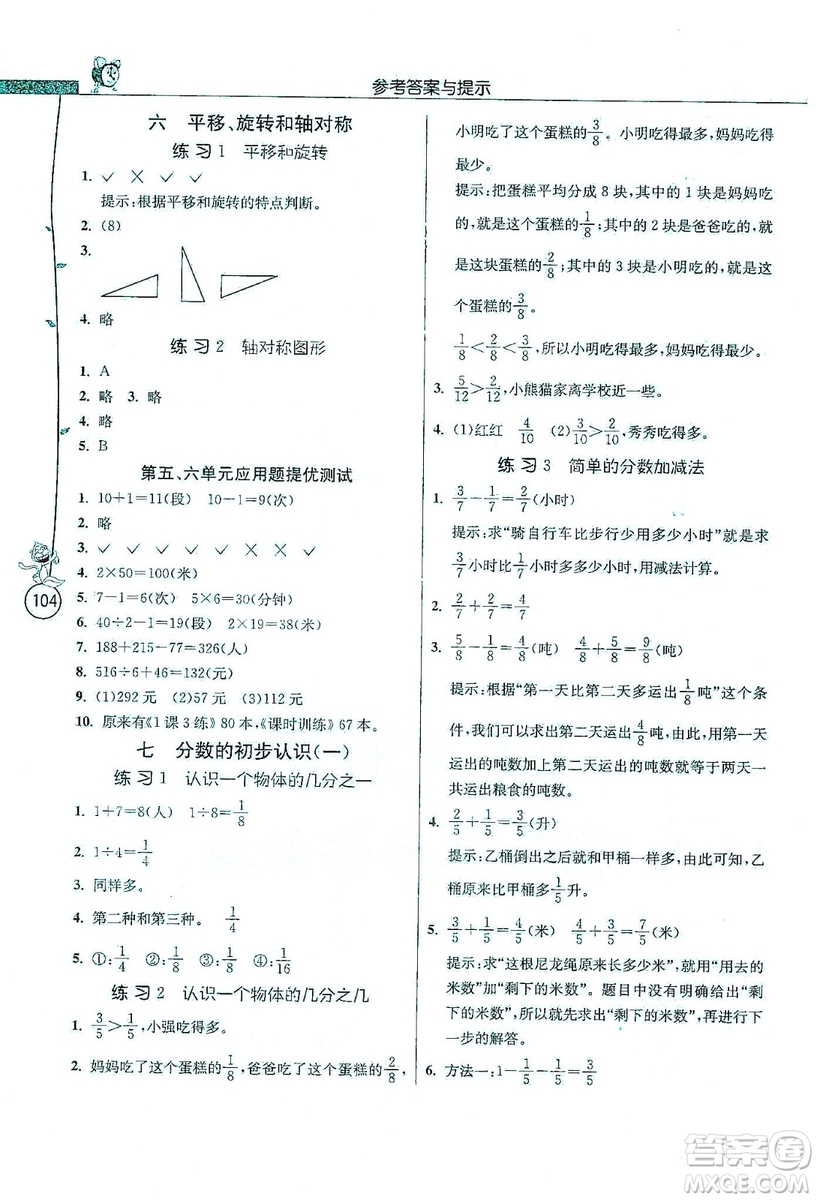 参考答案与提示
六 平移、旋转和轴对称
练习1 平移和旋转
1. ✓ ✕ ✓ ✓
提示:根据平移和旋转的特点判断。
2. (8)
3.
4. 略
练习2 轴对称图形
1. A
2. 略 3. 略
4. 略
5. B
第五、六单元应用题提优测试
1. 10+1=11(段) 10-1=9(次)
2. 略
3. ✓ ✓ ✓ ✓ ✕ ✕ ✓
4. 2×50=100(米)
5. 7-1=6(次) 5×6=30(分钟)
6. 40÷2-1=19(米) 2×19=38(米)
7. 188+215-77=326(人)
8. 516÷6+46=132(元)
9. (1)292元 (2)57元 (3)112元
10. 原来有《1课3练》80本,《课时训练》67本。
七 分数的初步认识(一)
练习1 认识一个物体的几分之一
1. 1+7=8(人) 1÷8=1/8
2. 1÷4=1/4
3. 同样多。
4. 第二种和第三种。 1/4
5. ①:1/4 ②:1/8 ③:1/16
练习2 认识一个物体的几分之几
1. 3/5>1/5,小强吃得多。
2. 妈妈吃了这个蛋糕的1/8,爸爸吃了这个蛋糕的2/8,
104
小明吃了这个蛋糕的3/8。小明吃得最多,妈妈吃得
最少。
提示:把蛋糕平均分成8块,其中的1块是妈妈吃
的,就是这个蛋糕的1/8;其中的2块是爸爸吃的,就
是这块蛋糕的2/8;其中的3块是小明吃的,就是这
个蛋糕的3/8。
1/8<2/8<3/8,所以小明吃得最多,妈妈吃得最少。
3. 5/12>2/12,小熊猫家离学校近一些。
4. (1)红红 4/10 (2)3/10>2/10,秀秀吃得多。
练习3 简单的分数加减法
1. 3/7-1/7=2/7(小时)
提示:求“骑自行车比步行少用多少小时”就是求
3/7小时比1/7小时多多少小时,用减法计算。
2. 2/7+2/7=4/7
3. 5/8-1/8=4/8(吨) 4/8+5/8=9/8(吨)
提示:根据“第一天比第二天多运出1/8吨”这个条
件,我们可以求出第二天运出4/8吨,再用第一天
运出的吨数加上第二天运出的吨数就是两天一
共运出粮食的吨数。
4. 2/5+1/5=3/5(升)
提示:乙桶倒出之后就和甲桶一样多,说明,乙
桶原来比甲桶多1/5升。
5. 3/5+1/5=4/5(米) 4/5+3/5=7/5(米)
提示:求“这根尼龙绳原来长多少米”,就用“用去的
米数”加“剩下的米数”。题目中没有明确给出“剩
下的米数”,所以就先求出“剩下的米数”,再进行下
一步的解答。
6. 方法一:1-1/5-1/5=3/5
答案圈
MXQE.COM